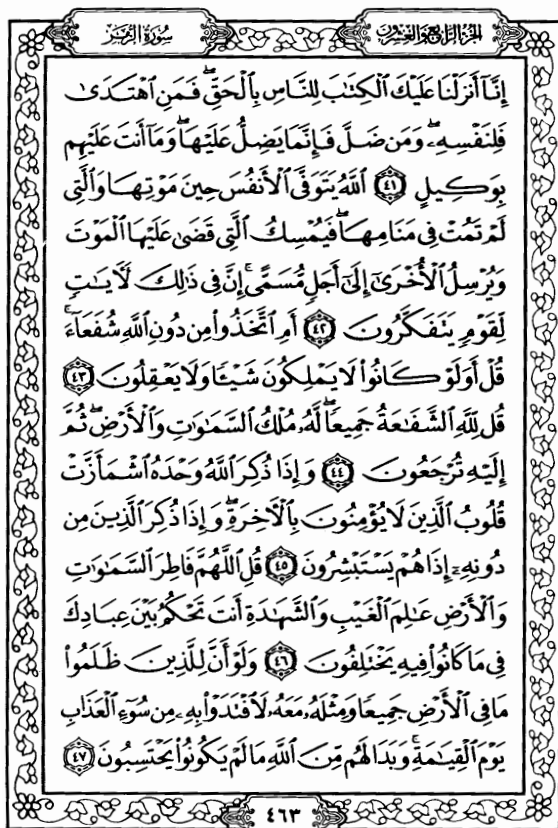 سُورَةُ الزُّمَرِ
الجُزْءُ الرَّابِعُ وَالعِشْرُونَ
إِنَّآ أَنزَلْنَا عَلَيْكَ ٱلْكِتَٰبَ لِلنَّاسِ بِٱلْحَقِّۖ فَمَنِ ٱهْتَدَىٰ
فَلِنَفْسِهِۦۖ وَمَن ضَلَّ فَإِنَّمَا يَضِلُّ عَلَيْهَاۖ وَمَآ أَنتَ عَلَيْهِم
بِوَكِيلٍ ٤١ ٱللَّهُ يَتَوَفَّى ٱلْأَنفُسَ حِينَ مَوْتِهَا وَٱلَّتِى
لَمْ تَمُتْ فِى مَنَامِهَاۖ فَيُمْسِكُ ٱلَّتِى قَضَىٰ عَلَيْهَا ٱلْمَوْتَ
وَيُرْسِلُ ٱلْأُخْرَىٰٓ إِلَىٰٓ أَجَلٍ مُّسَمًّىۚ إِنَّ فِى ذَٰلِكَ لَـَٔايَٰتٍ
لِّقَوْمٍ يَتَفَكَّرُونَ ٤٢ أَمِ ٱتَّخَذُوا۟ مِن دُونِ ٱللَّهِ شُفَعَآءَۚ
قُلْ أَوَلَوْ كَانُوا۟ لَا يَمْلِكُونَ شَيْـًٔا وَلَا يَعْقِلُونَ ٤٣
قُل لِّلَّهِ ٱلشَّفَٰعَةُ جَمِيعًاۖ لَّهُۥ مُلْكُ ٱلسَّمَٰوَٰتِ وَٱلْأَرْضِۖ ثُمَّ
إِلَيْهِ تُرْجَعُونَ ٤٤ وَإِذَا ذُكِرَ ٱللَّهُ وَحْدَهُ ٱشْمَأَزَّتْ
قُلُوبُ ٱلَّذِينَ لَا يُؤْمِنُونَ بِٱلْـَٔاخِرَةِۖ وَإِذَا ذُكِرَ ٱلَّذِينَ مِن
دُونِهِۦٓ إِذَا هُمْ يَسْتَبْشِرُونَ ٤٥ قُلِ ٱللَّهُمَّ فَاطِرَ ٱلسَّمَٰوَٰتِ
وَٱلْأَرْضِ عَٰلِمَ ٱلْغَيْبِ وَٱلشَّهَٰدَةِ أَنتَ تَحْكُمُ بَيْنَ عِبَادِكَ
فِى مَا كَانُوا۟ فِيهِ يَخْتَلِفُونَ ٤٦ وَلَوْ أَنَّ لِلَّذِينَ ظَلَمُوا۟
مَا فِى ٱلْأَرْضِ جَمِيعًا وَمِثْلَهُۥ مَعَهُۥ لَٱفْتَدَوْا۟ بِهِۦ مِن سُوٓءِ ٱلْعَذَابِ
يَوْمَ ٱلْقِيَٰمَةِۚ وَبَدَا لَهُم مِّنَ ٱللَّهِ مَا لَمْ يَكُونُوا۟ يَحْتَسِبُونَ ٤٧
٤٦٣